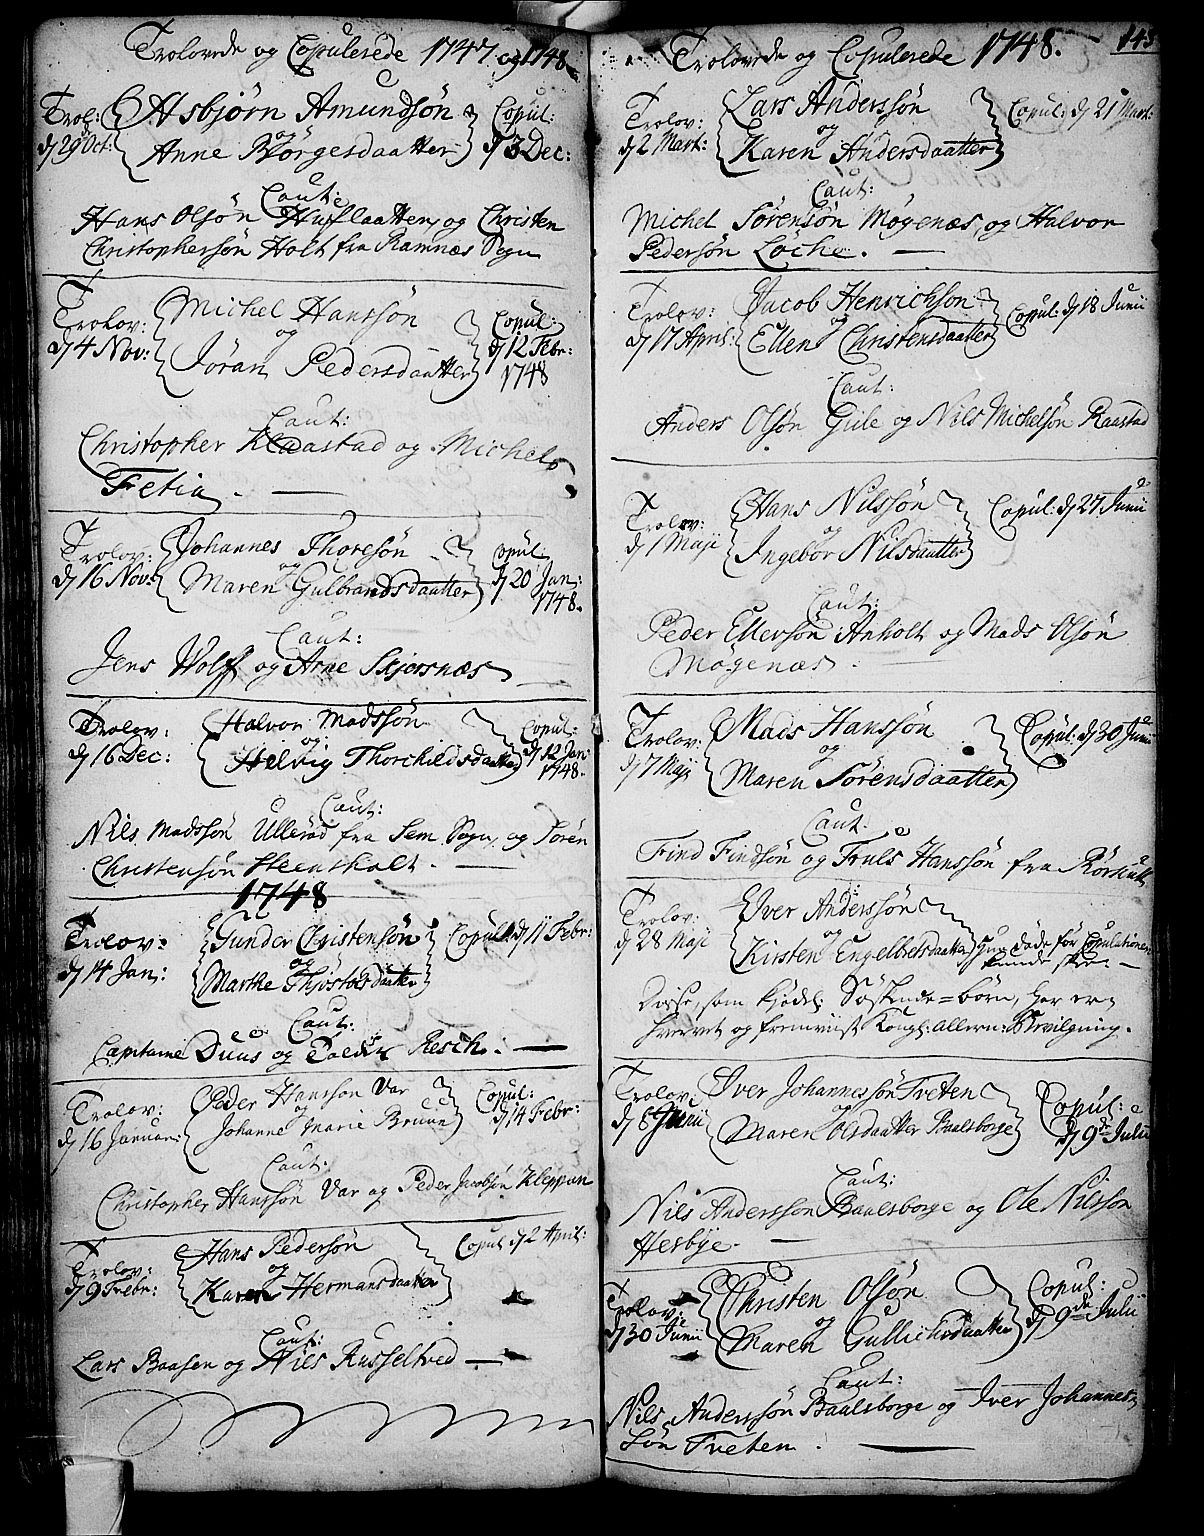 Trolovede og Copulerede 1747 og 1748.
Trol: Asbjørn Amundsøn Copul:
d 29 Oct: og d 3 Dec:
Anne Børgesdaatter
Caut:
Hans Olsøn Huflaatten og Christen
Christophersøn Holt fra Ramnæs Sogn
Trolov: Michel Hanssøn Copul:
d 4 Nov: og d 12 Febr:
Jøran Pedersdaatter 1748
Caut:
Christopher Klaastad og Michel
Fetia.
Trolov: Johannes Thoresøn Copul:
d 16 Nov: og d 20 Jan:
Maren Gulbrandsdaatter 1748.
Caut:
Jens Wolff og Arne Skjersnæs
Trolov: Halvor Madssøn Copul:
d 16 Dec: og d 12 Jan:
Helvig Thorchildsdaatter 1748.
Caut:
Nils Madssøn Ullerød fra Sem Sogn og Søren
Christensøn Steensholt.
1748
Trolov: Gunder Christensøn Copul: d 11 Febr:
d 14 Jan: og
Marthe Thjøstelsdaatter
Caut:
Capitaine Duus og Resch.
Trolov: Peder Hanssøn Var Copul:
d 16 Januar: og d 14 Febr:
Johanne Marie Bruun
Caut:
Christopher Hanssøn Var og Peder Jacobsøn Kleppan
Trolov: Hans Pedersøn Copul d 2 April:
d 9 Febr: og
Karen Hermansdaatter
Caut:
Lars Baasen og Niels Russeltved
Trolovede og Copulerede 1748. 143
Trolov: Lars Anderssøn Copul: d 21 Mart:
d 2 Mart: og
Karen Andersdaatter
Caut:
Michel Sørensøn Møgenæs og Halvor
Pedersøn Løche.
Trolov: Jacob Henrichsøn Copul: d 18 Junii
d 17 April: og
Ellen Christensdaatter
Caut:
Anders Olsøn Gile og Nils Michelsøn Raastad
Trolov: Hans Nilssøn Copul: d 27 Junii
d 1 Maji og
Ingebor Nilsdaatter
Caut:
Peder Ellefsøn Anholt og Mads Olsøn
Møgenæs.
Trolov: Mads Hanssøn Copul: d 30 Junii
d 7 Maji og
Maren Sørensdaatter
Caut.
Find Findsøn og Truls Hanssøn fra
Trolov: Iver Anderssøn
d 28 Maji og
Kirsten Engelbretsdaatter Hun døde før Copulationen
kunde skee
Disse, som kjødel: Søskende-børn, har er-
hvervet og fremviist Kongl: allern: Bevilgning.
Trolov: Iver Johannessøn Tveten Copul:
d 8 Junii og d 9de Julii
Maren Olsdaatter Baalsborge
Caut:
Nils Anderssøn Baalsborge og Ole Nilssøn
Hesbye.
Trolov: Christen Olsøn Copul:
d 30 Junii og d 9de Julii
Maren Gullichsdaatter
Caut:
Nils Anderssøn Baalsborge og Iver Johannes-
søn Tveten.